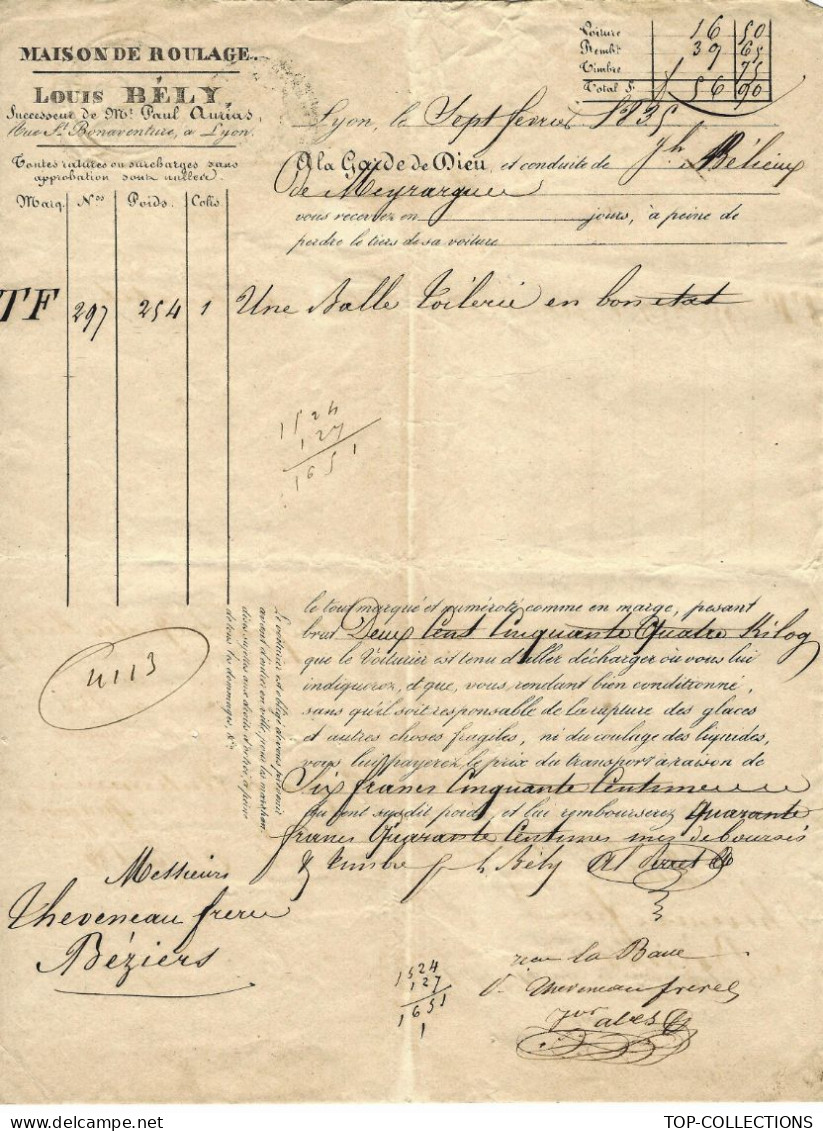 MAISON DE ROULAGE.
LOUIS BÉLY,
Successeur de Mr. Paul Aurias,
Rue St. Bonaventure, à Lyon.
Toutes ratures ou surcharges sans
approbation sont nulles.
Voiture 16 50
Rembt 39 65
Timbre 75
Total F. 56 90
Lyon, le Sept fevrier 1835
A la Garde de Dieu, et conduite de Jh.
de Meyrargues
vous recevrez en jours, à peine de
perdre le tiers de sa voiture
Marq. Nos Poids. Colis.
TF 297 254 1 Une Balle Toilerie en bon etat
1524
127
1651
le tout marqué et numéroté comme en marge, pesant
brut Deux Cent Cinquante Quatre Kilog
que le Voiturier est tenu d'aller décharger où vous lui
indiquerez, et que, vous rendant bien conditionné,
sans qu'il soit responsable de la rupture des glaces
et autres choses fragiles, ni du coulage des liquides,
vous lui payerez le prix du transport à raison de
Six francs Cinquante Centimes
du cent susdit poids, et lui rembourserez Quarante
francs Quarante Centimes mes debourses
& timbre Bély
Le voiturier est obligé de vous prévenir
avant d'entrer en ville, pour les marchan
dises sujettes aux droits d'octroi, à peine
de tous les dommages, &a.
4113
Messieurs
Theveneau frere
Béziers
1524
127
1651
1
pour la Balle
Theveneau freres
TOP-COLLECTIONS